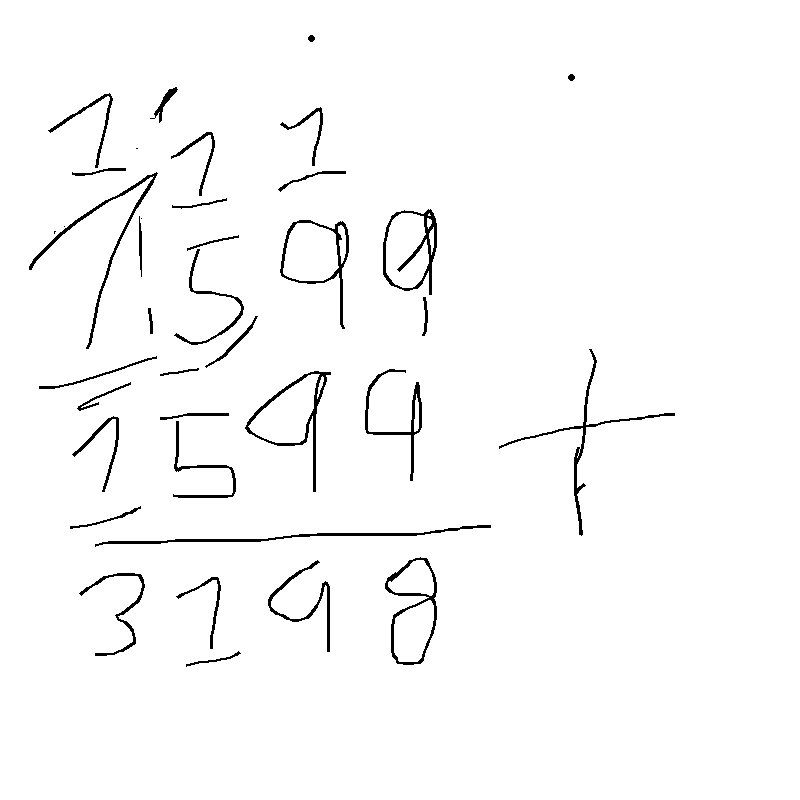 1 1 1
1599
1599 +
3198